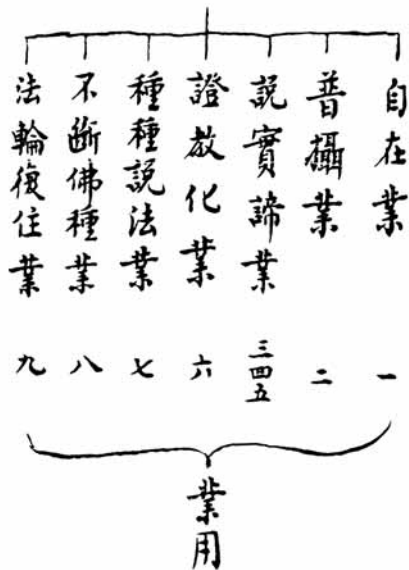 自在業 一
普攝業 二
説實諦業 三四五
證教化業 六
種種説法業 七
不斷佛種業 八
法輪復住業 九
業用